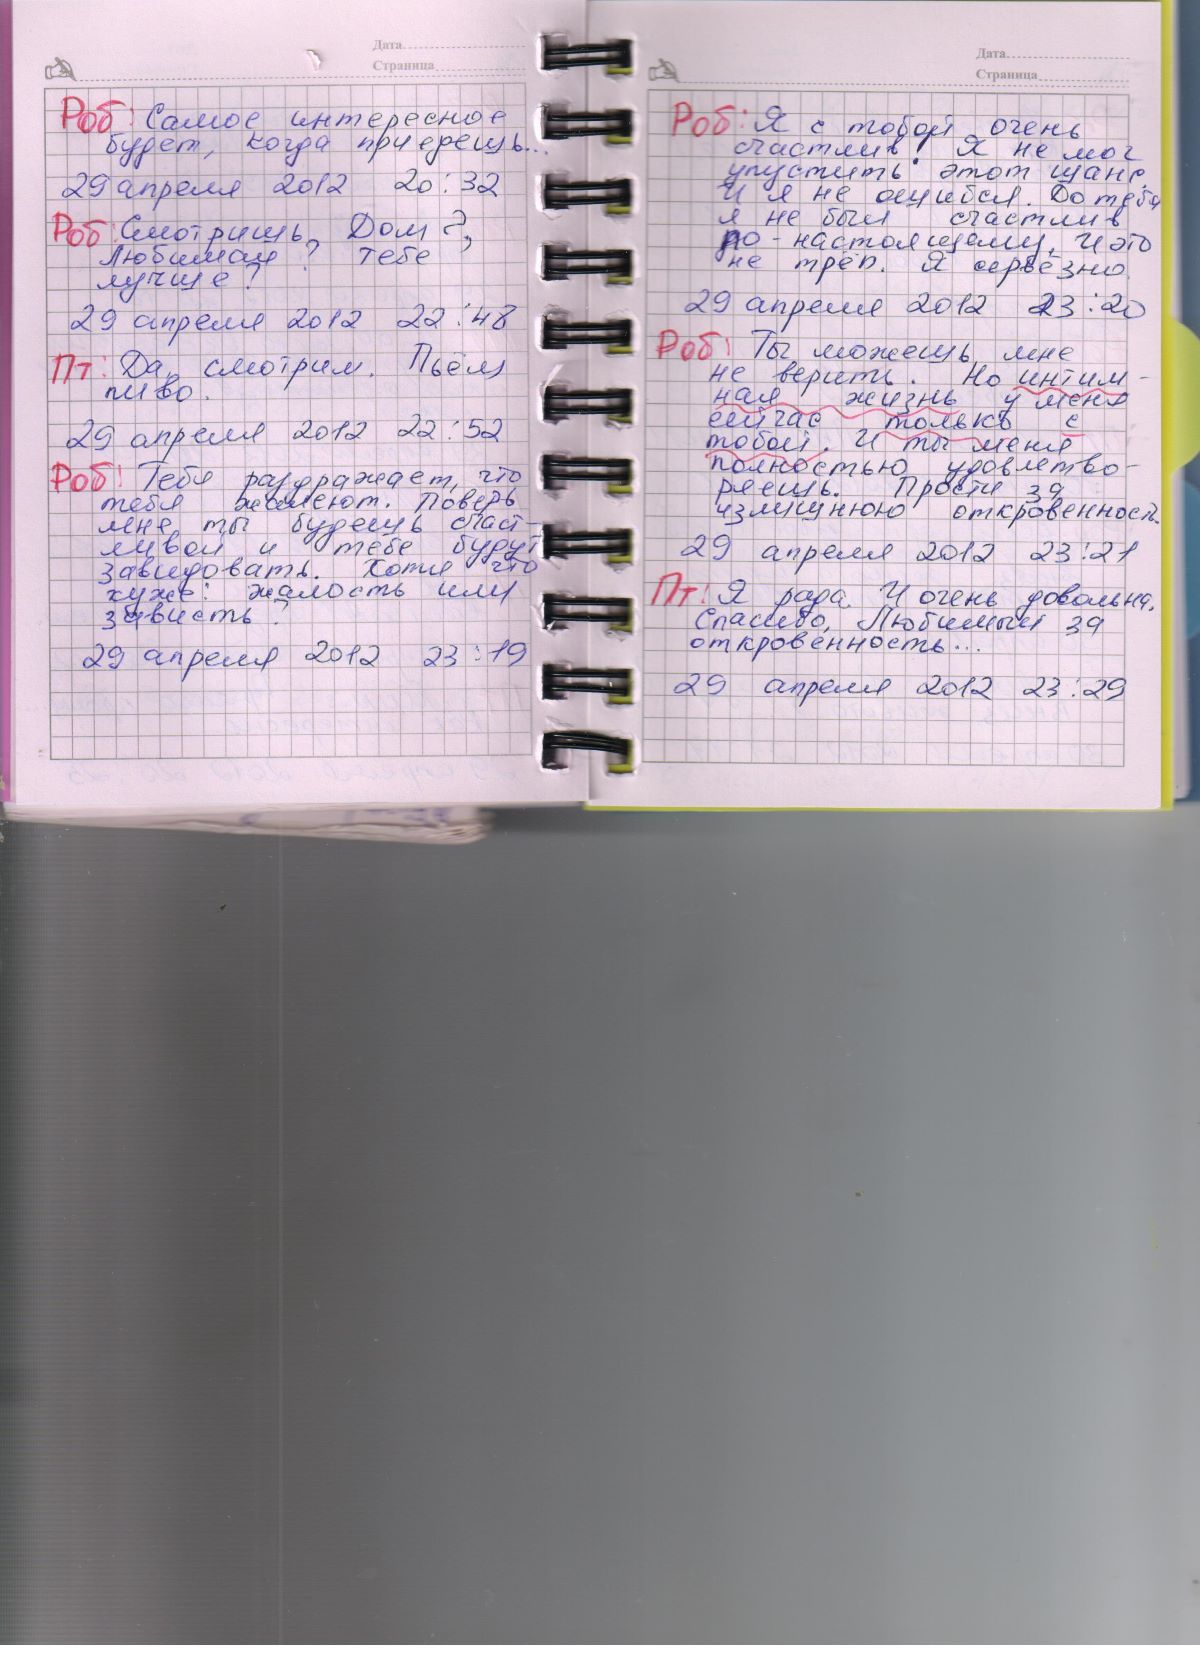 Дата
Страница
Роб: Самое интересное
будет, когда приедешь...
29 апреля 2012 20:32
Роб: Смотришь Дом 2,
Любимая? Тебе
лучше?
29 апреля 2012 22:48
Пт: Да, смотрим. Пьём
пиво.
29 апреля 2012 22:52
Роб: Тебя раздражает, что
тебя жалеют. Поверь
мне ты будешь счаст-
ливой и тебе будут
завидовать. Хотя что
хуже: жалость или
зависть?
29 апреля 2012 23:19
Дата
Страница
Роб: Я с тобой очень
счастлив! Я не мог
упустить этот шанс.
И я не ошибся. До тебя
я не был счастлив
по-настоящему. И это
не трёп. Я серьёзно.
29 апреля 2012 23:20
Роб: Ты можешь мне
не верить. Но интим-
ная жизнь у меня
сейчас только с
тобой. И ты меня
полностью удовлетво-
ряешь. Прости за
излишнюю откровенность.
29 апреля 2012 23:21
Пт: Я рада. И очень довольна.
Спасибо, Любимый за
откровенность...
29 апреля 2012 23:29